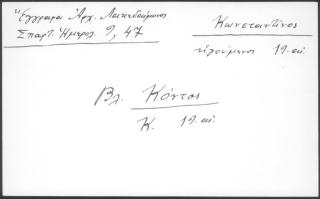 Ἔγγραφα Ἀρχ. Λακεδαίμονος
Σπαρτ. Ἡμερολ. 9, 47
Κωνσταντῖνος
ἡγούμενος 19. αἰ.
Βλ. Κόντος
Κ. 19. αἰ.